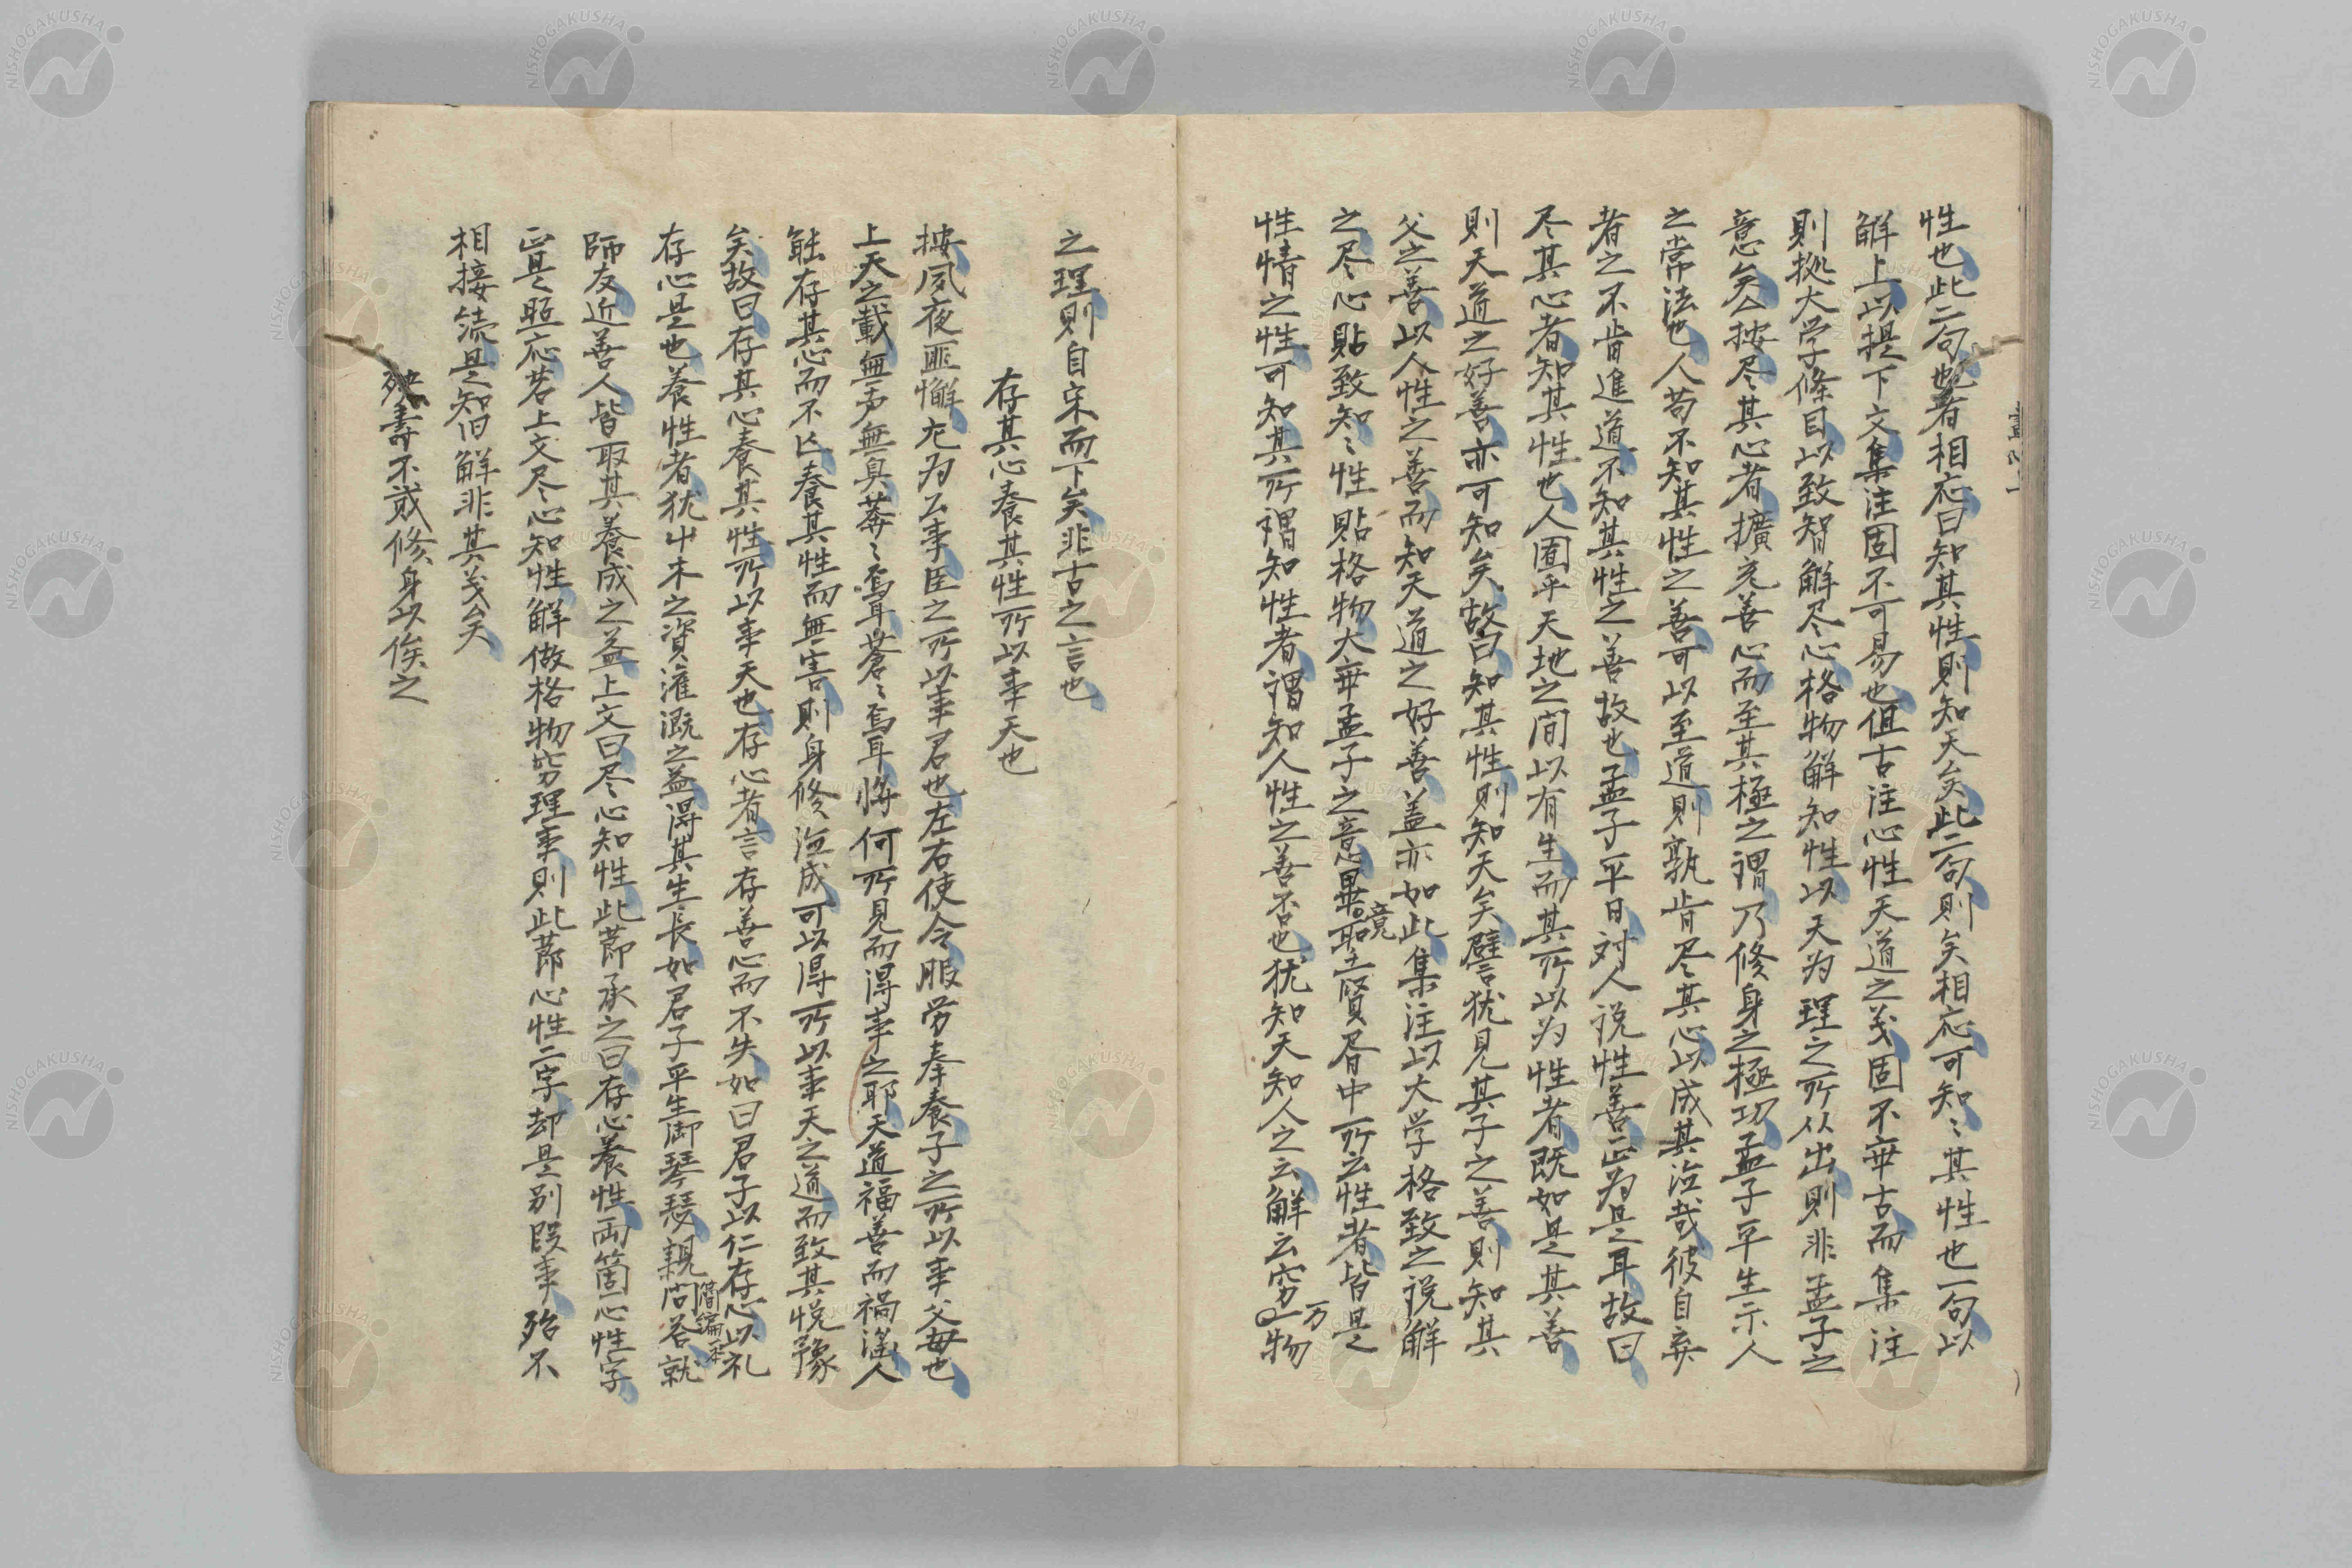 性也此二句也者相応曰知其性則知天矣此二句則矣相応可知〻其性也一句以
解上以提下文集注固不可易也但古注心性天道之义固不畔古而集注
則拠大学條目以致智解尽心格物解知性以天为理之所从出則非孟子之
意矣今按尽其心者擴充善心而至其極之謂乃修身之極功孟子平生示人
之常法也人苟不知其性之善可以至道則孰肯尽其心以成其治哉彼自弃
者之不肯進道不知其性之善故也孟子平日対人说性善正为是耳故曰
尽其心者知其性也人囿乎天地之间以有生而其所以为性者既如是其善
則天道之好善亦可知矣故曰知其性則知天矣譬犹見其子之善則知其
父之善以人性之善而知天道之好善盖亦如此集注以大学格致之说解
之尽心貼致知〻性貼格物大畔孟子之意畢竟聖賢胥中所云性者皆是
性情之性可知其所謂知性者謂知人性之善否也犹知天知人之云解云穷万物
之理則自宋而下矣非古之言也
存其心養其性所以事天也
按夙夜匪懈左为公事臣之所以事君也左右使令服劳奉養子之所以事父母也
上天之載無声無臭莽〻焉耳蒼〻焉耳将何所見而得事之耶天道福善而禍淫人
能存其心而不亾養其性而無害則身修治成可以得所以事天之道而致其悦豫
矣故曰存其心養其性所以事天也存心者言存善心而不失如曰君子以仁存心以礼
存心是也養性者犹屮木之資灌溉之益得其生長如君子平生御琴瑟親简編问答就
師友近善人皆取其養成之益上文曰尽心知性此莭承之曰存心養性両箇心性字
正是照应若上文尽心知性解做格物穷理事則此莭心性二字却是别段事殆不
相接続是知旧解非其义矣
殀壽不貮修身以俟之